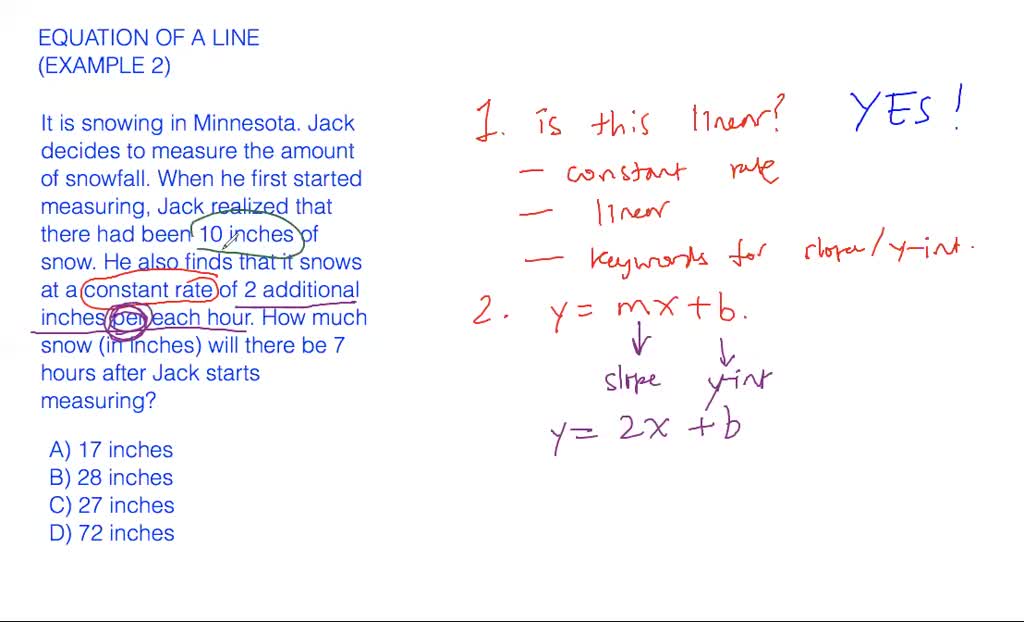 EQUATION OF A LINE
(EXAMPLE 2)
It is snowing in Minnesota. Jack
decides to measure the amount
of snowfall. When he first started
measuring, Jack realized that
there had been 10 inches of
snow. He also finds that it snows
at a constant rate of 2 additional
inches per each hour. How much
snow (in inches) will there be 7
hours after Jack starts
measuring?
A) 17 inches
B) 28 inches
C) 27 inches
D) 72 inches
1. is this linear? YES!
- constant rate
- linear
- keywords for slope/y-int.
2. y = mx + b.
slope y-int
y = 2x + b